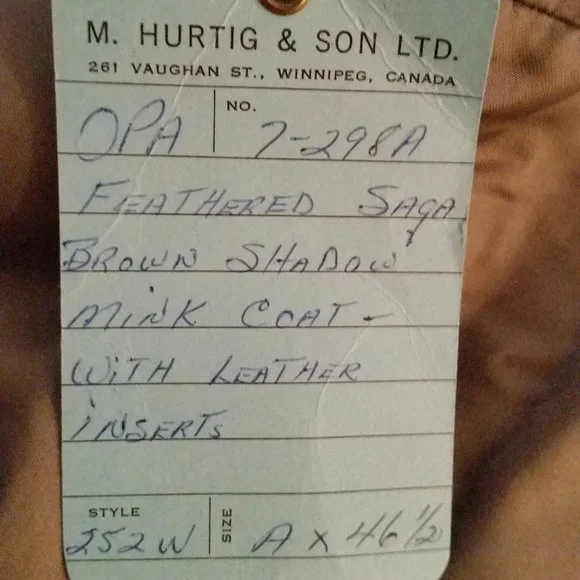 M. HURTIG & SON LTD.
261 VAUGHAN ST., WINNIPEG, CANADA
OPA NO. 7-298A
FEATHERED SAGA
BROWN SHADOW
MINK COAT-
WITH LEATHER
INSERTS
STYLE 252W SIZE A x 46 1/2